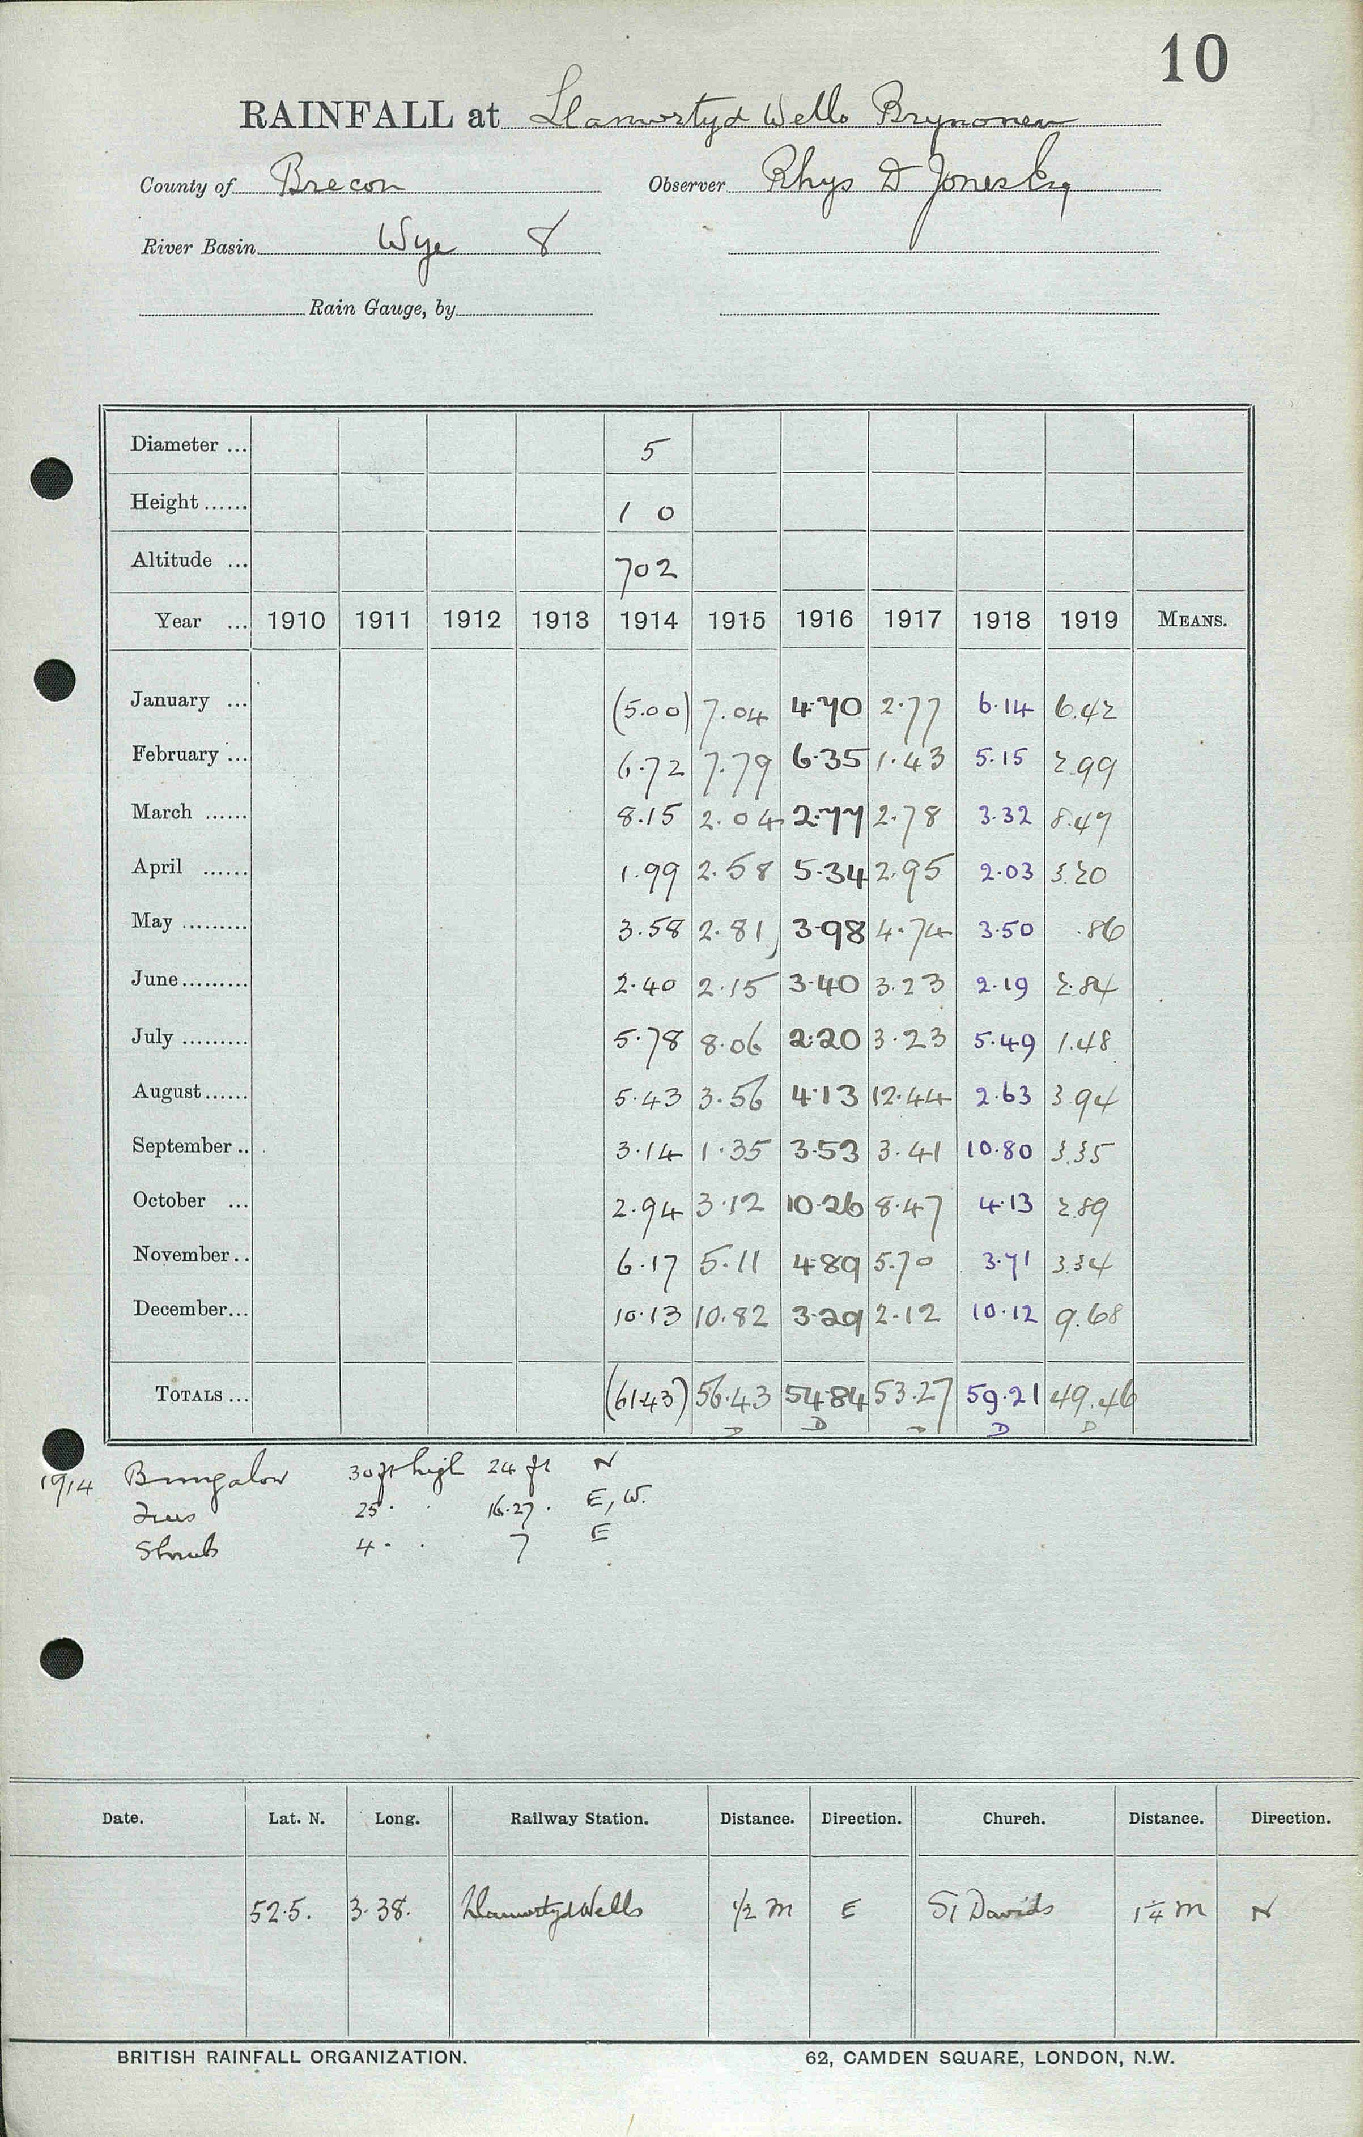 10
RAINFALL at Llanwrtyd Wells
County of Brecon Observer Rhys D Jones Esq
River Basin Wye 8
Rain Gauge, by
Diameter ... 5
Height ...... 1 0
Altitude ... 702
Year ... 1910 1911 1912 1913 1914 1915 1916 1917 1918 1919 MEANS.
January ... (5.00) 7.04 4.70 2.77 6.14 6.42
February ... 6.72 7.79 6.35 1.43 5.15 2.99
March ...... 8.15 2.04 2.77 2.78 3.32 8.47
April ...... 1.99 2.58 5.34 2.95 2.03 3.20
May ......... 3.58 2.81 3.98 4.74 3.50 .86
June ......... 2.40 2.15 3.40 3.23 2.19 2.84
July ......... 5.78 8.06 2.20 3.23 5.49 1.48
August ...... 5.43 3.56 4.13 12.44 2.63 3.94
September .. 3.14 1.35 3.53 3.41 10.80 3.35
October ... 2.94 3.12 10.26 8.47 4.13 2.89
November .. 6.17 5.11 4.89 5.70 3.71 3.34
December ... 10.13 10.82 3.29 2.12 10.12 9.68
TOTALS ... (61.43) 56.43 54.84 53.27 59.21 49.46
D D D D D
1914 Bungalow 30 ft high 24 ft N
Trees 25 . . 16.27 . E, W.
Shrub 4 . . 7 E
Date. Lat. N. Long. Railway Station. Distance. Direction. Church. Distance. Direction.
52.5. 3.38. Llanwrtyd Wells 1/2 m E St Davids 1 1/4 m N
BRITISH RAINFALL ORGANIZATION. 62, CAMDEN SQUARE, LONDON, N.W.